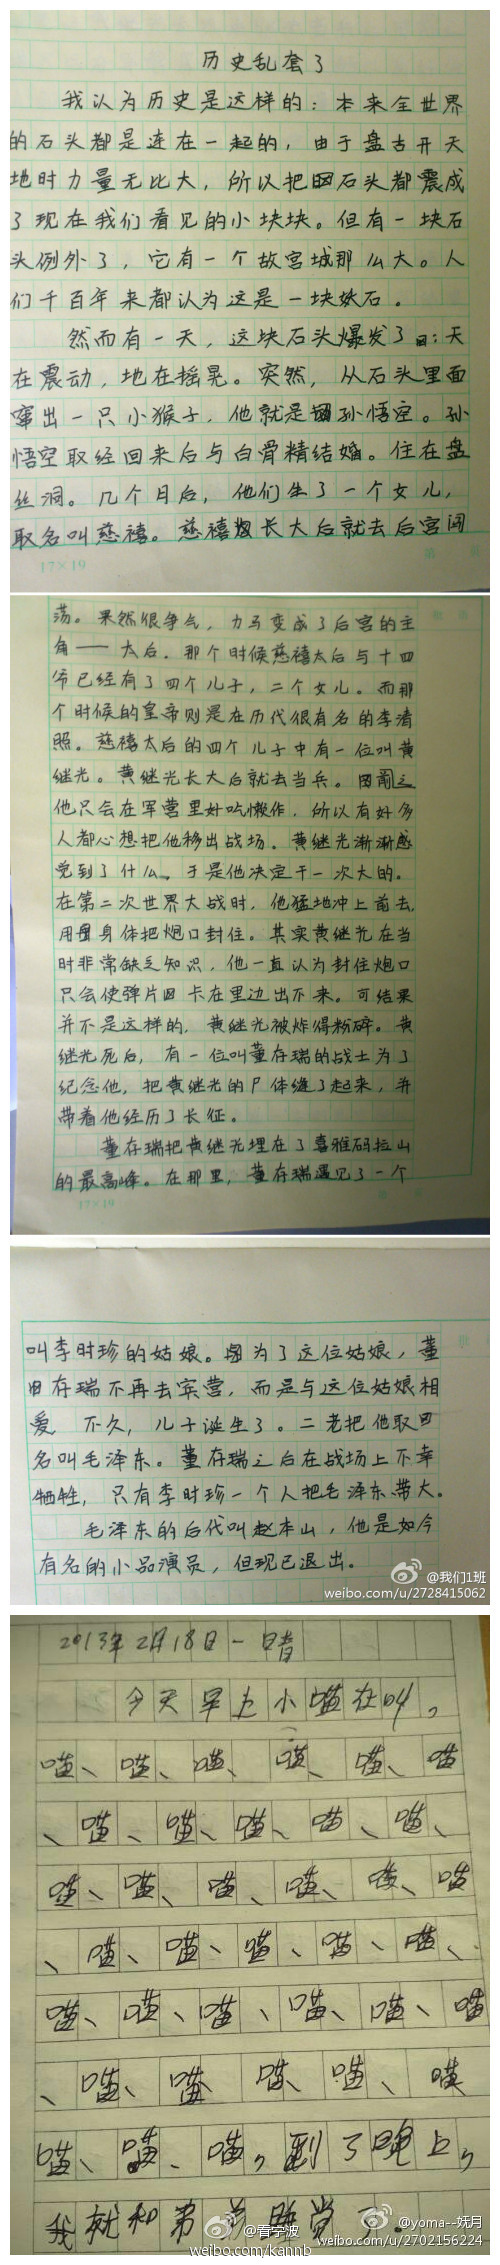 历史乱套了
我认为历史是这样的：本来全世界
的石头都是连在一起的，由于盘古开天
地时力量无比大，所以把石头都震成
了现在我们看见的小块块。但有一块石
头例外了，它有一个故宫城那么大。人
们千百年来都认为这是一块妖石。
然而有一天，这块石头爆发了：天
在震动，地在摇晃。突然，从石头里面
窜出一只小猴子，他就是孙悟空。孙
悟空取经回来后与白骨精结婚。住在盘
丝洞。几个月后，他们生了一个女儿，
取名叫慈禧。慈禧长大后就去后宫闯
17×19
荡。果然很争气，立马变成了后宫的主
角——太后。那个时候慈禧太后与十四
爷已经有了四个儿子，二个女儿。而那
个时候的皇帝则是在历代很有名的李清
照。慈禧太后的四个儿子中有一位叫黄
继光。黄继光长大后就去当兵。
他只会在军营里好吃懒作，所以有好多
人都心想把他移出战场。黄继光渐渐感
觉到了什么。于是他决定干一次大的。
在第二次世界大战时，他猛地冲上前去，
用身体把炮口封住。其实黄继光在当
时非常缺乏知识，他一直认为封住炮口
只会使弹片卡在里边出不来。可结果
并不是这样的，黄继光被炸得粉碎。黄
继光死后，有一位叫董存瑞的战士为了
纪念他，把黄继光的尸体缝了起来，并
带着他经历了长征。
董存瑞把黄继光埋在了喜雅码拉山
的最高峰。在那里，董存瑞遇见了一个
17×19
叫李时珍的姑娘。因为了这位姑娘，董
存瑞不再去宾营，而是与这位姑娘相
爱 不久，儿子诞生了。二老把他取
名叫毛泽东。董存瑞之后在战场上不幸
牺牲，只有李时珍一个人把毛泽东带大。
毛泽东的后代叫赵本山，他是如今
有名的小品演员，但现已退出。
@我们1班
weibo.com/u/2728415062
2013年2月18日一晴
今天早上小喵在叫，
喵、喵、喵、喵、喵、喵
、喵、喵、喵、喵、喵、
喵、喵、喵、喵、喵、喵
、喵、喵、喵、喵、喵、
喵、喵、喵、喵、喵、喵
、喵、喵、喵、喵、喵
喵、喵、喵，到了晚上，
我就和弟弟睡觉了。
@看宁波
weibo.com/kannb
@yoma--妩月
weibo.com/u/2702156224